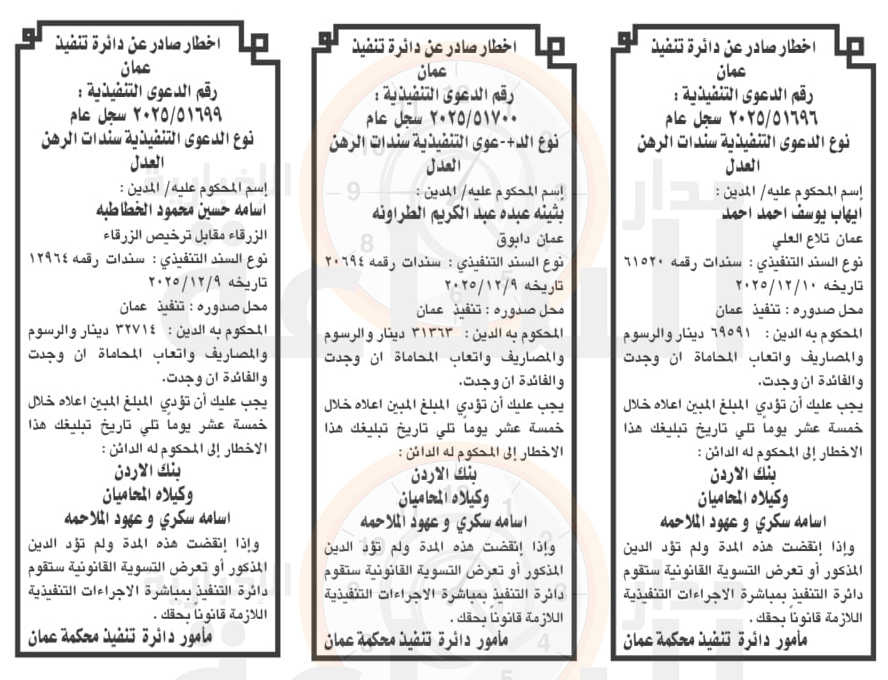 اخطار صادر عن دائرة تنفيذ
عمان
رقم الدعوى التنفيذية :
٢٠٢٥/٥١٦٩٦ سجل عام
نوع الدعوى التنفيذية سندات الرهن
العدل
إسم المحكوم عليه/ المدين :
ايهاب يوسف احمد احمد
عمان تلاع العلي
نوع السند التنفيذي : سندات رقمه ٦١٥٢٠
تاريخه ٢٠٢٥/١٢/١٠
محل صدوره : تنفيذ عمان
المحكوم به الدين : ٦٩٥٩١ دينار والرسوم
والمصاريف واتعاب المحاماة ان وجدت
والفائدة ان وجدت.
يجب عليك أن تؤدي المبلغ المبين اعلاه خلال
خمسة عشر يوماً تلي تاريخ تبليغك هذا
الاخطار إلى المحكوم له الدائن :
بنك الاردن
وكيلاه المحاميان
اسامه سكري و عهود الملاحمه
وإذا إنقضت هذه المدة ولم تؤد الدين
المذكور أو تعرض التسوية القانونية ستقوم
دائرة التنفيذ بمباشرة الاجراءات التنفيذية
اللازمة قانوناً بحقك .
مأمور دائرة تنفيذ محكمة عمان
اخطار صادر عن دائرة تنفيذ
عمان
رقم الدعوى التنفيذية :
٢٠٢٥/٥١٧٠٠ سجل عام
نوع الد+-عوى التنفيذية سندات الرهن
العدل
إسم المحكوم عليه/ المدين :
بثينه عبده عبد الكريم الطراونه
عمان دابوق
نوع السند التنفيذي : سندات رقمه ٢٠٦٩٤
تاريخه ٢٠٢٥/١٢/٩
محل صدوره : تنفيذ عمان
المحكوم به الدين : ٣١٣٦٣ دينار والرسوم
والمصاريف واتعاب المحاماة ان وجدت
والفائدة ان وجدت.
يجب عليك أن تؤدي المبلغ المبين اعلاه خلال
خمسة عشر يوماً تلي تاريخ تبليغك هذا
الاخطار إلى المحكوم له الدائن :
بنك الاردن
وكيلاه المحاميان
اسامه سكري و عهود الملاحمه
وإذا إنقضت هذه المدة ولم تؤد الدين
المذكور أو تعرض التسوية القانونية ستقوم
دائرة التنفيذ بمباشرة الاجراءات التنفيذية
اللازمة قانوناً بحقك .
مأمور دائرة تنفيذ محكمة عمان
اخطار صادر عن دائرة تنفيذ
عمان
رقم الدعوى التنفيذية :
٢٠٢٥/٥١٦٩٩ سجل عام
نوع الدعوى التنفيذية سندات الرهن
العدل
إسم المحكوم عليه/ المدين :
اسامه حسين محمود الخطاطبه
الزرقاء مقابل ترخيص الزرقاء
نوع السند التنفيذي : سندات رقمه ١٢٩٦٤
تاريخه ٢٠٢٥/١٢/٩
محل صدوره : تنفيذ عمان
المحكوم به الدين : ٣٢٧١٤ دينار والرسوم
والمصاريف واتعاب المحاماة ان وجدت
والفائدة ان وجدت.
يجب عليك أن تؤدي المبلغ المبين اعلاه خلال
خمسة عشر يوماً تلي تاريخ تبليغك هذا
الاخطار إلى المحكوم له الدائن :
بنك الاردن
وكيلاه المحاميان
اسامه سكري و عهود الملاحمه
وإذا إنقضت هذه المدة ولم تؤد الدين
المذكور أو تعرض التسوية القانونية ستقوم
دائرة التنفيذ بمباشرة الاجراءات التنفيذية
اللازمة قانوناً بحقك .
مأمور دائرة تنفيذ محكمة عمان